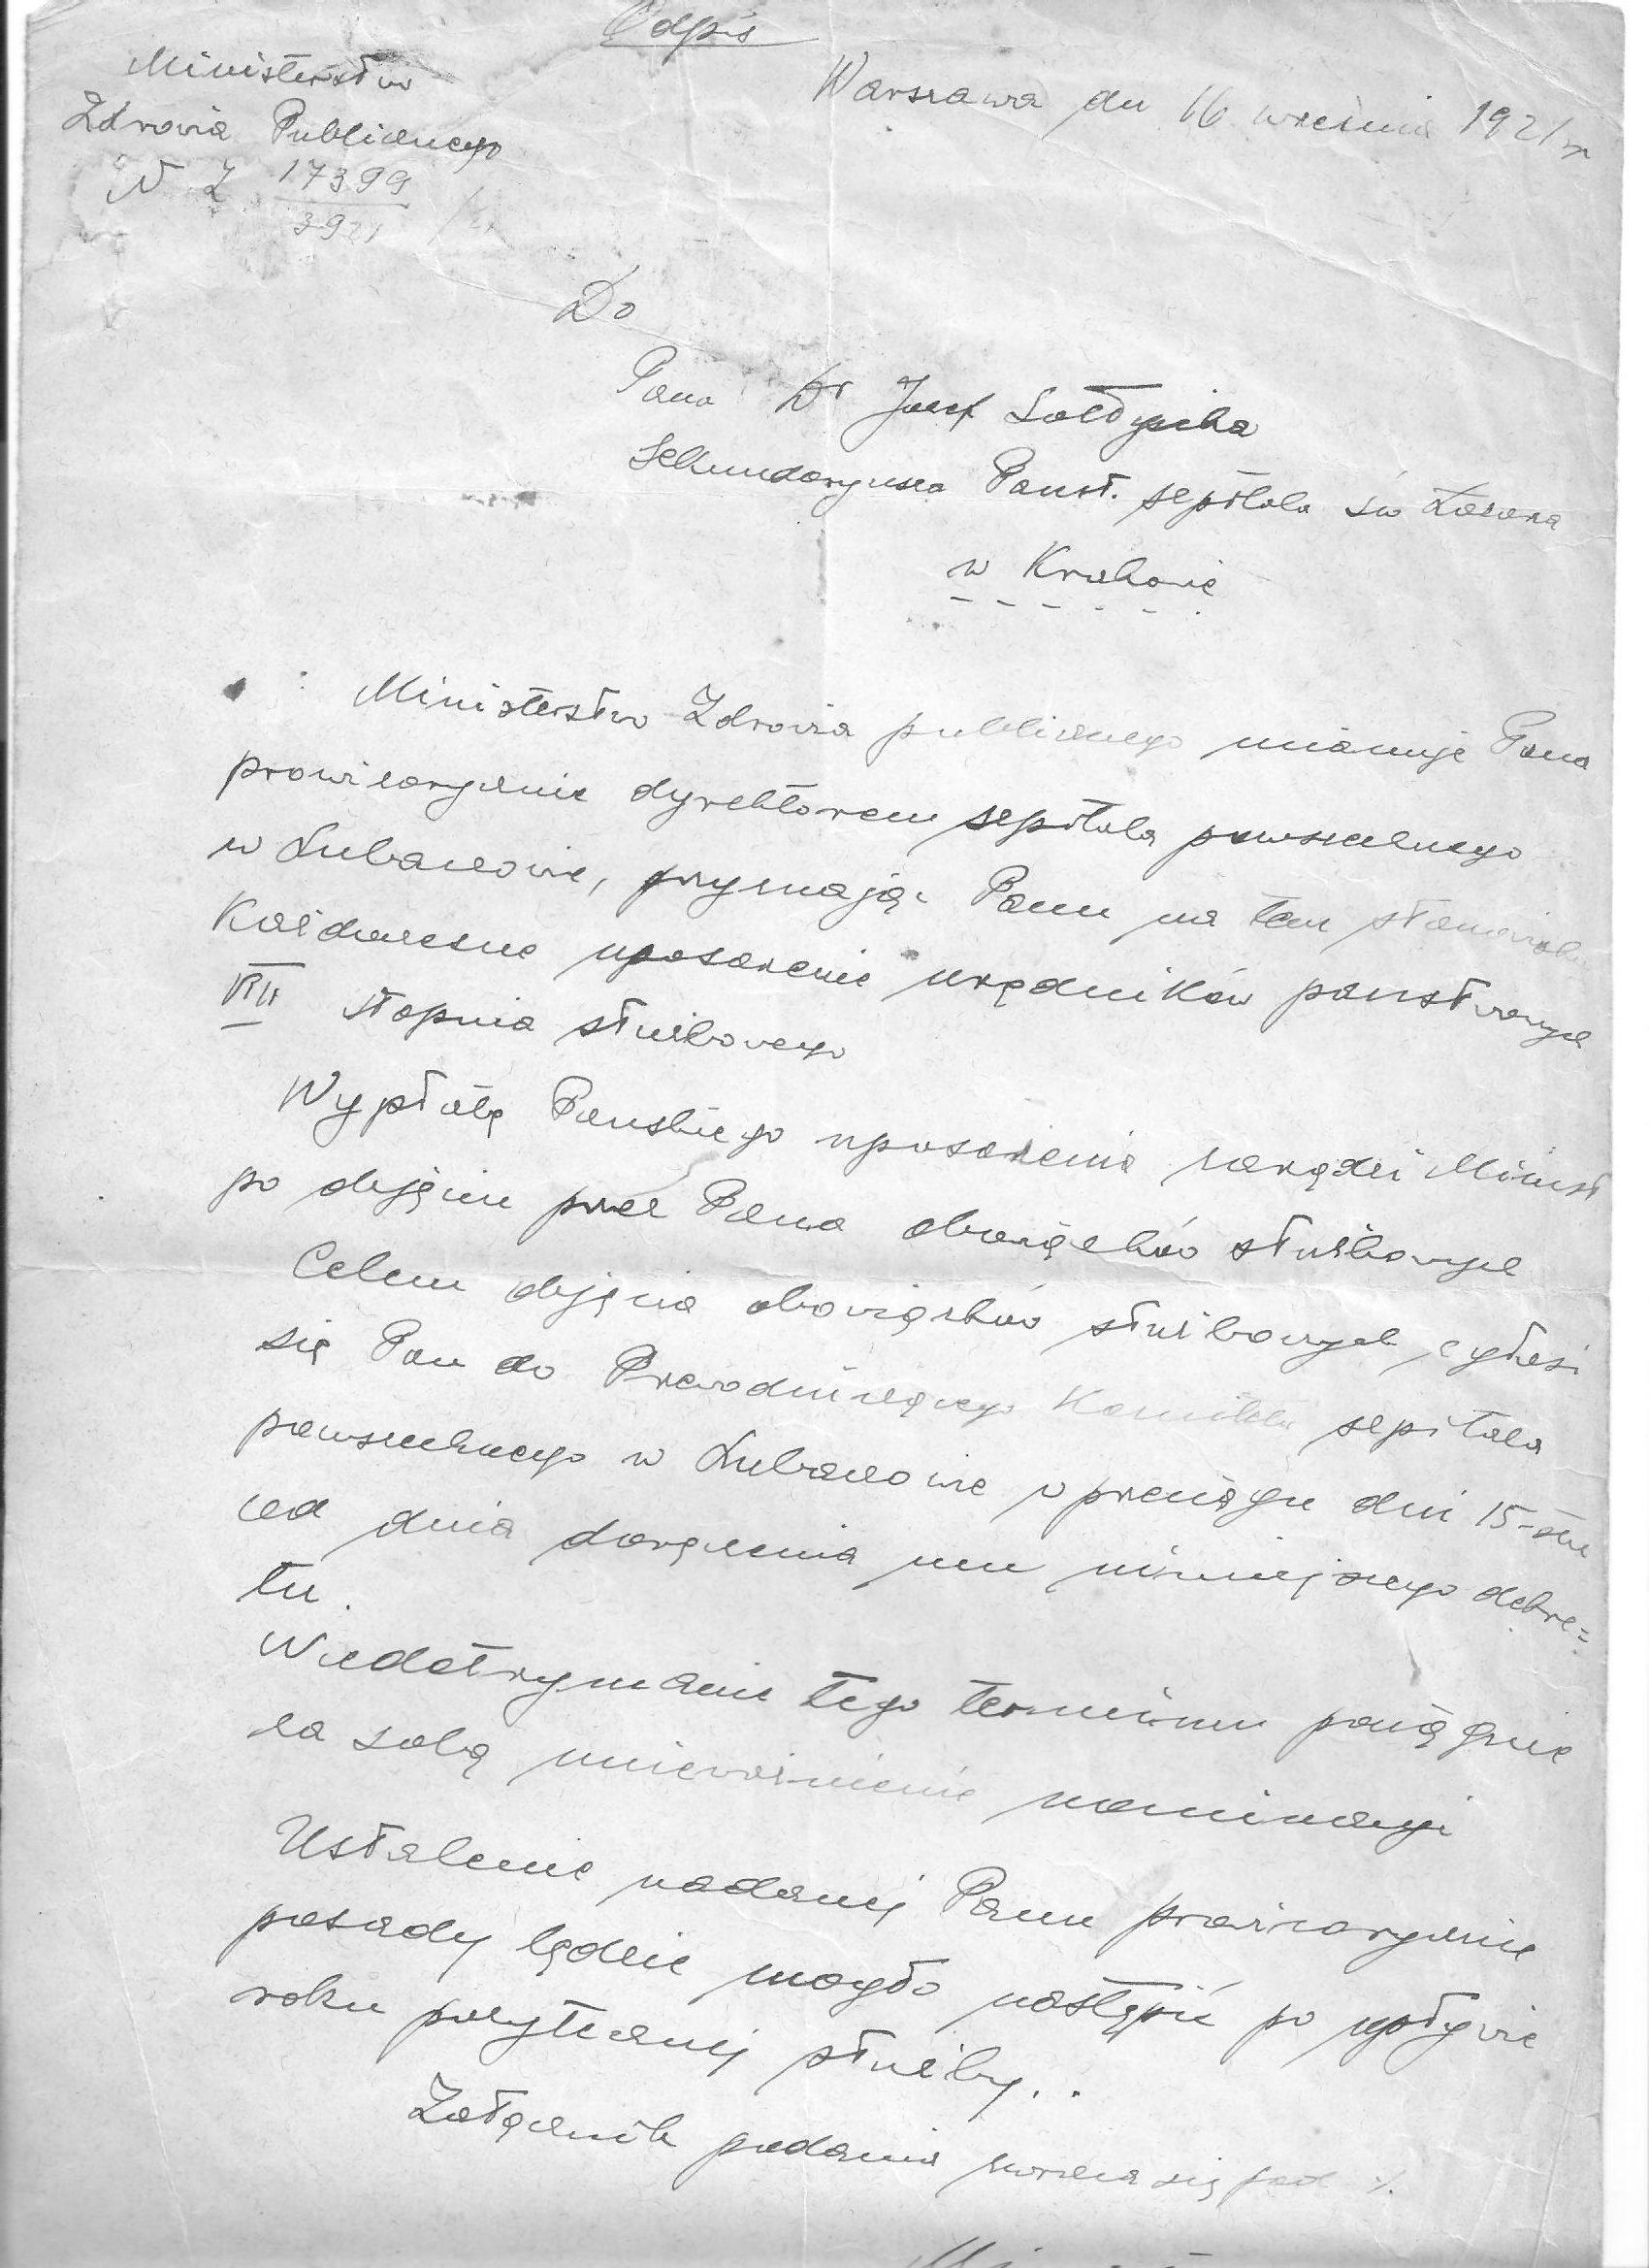 Odpis
Ministerstwo
Zdrowia Publicznego
N Z 17399
3921
Warszawa dn 16 września 1921 r
Do
Pana Dr Józef Sołtysika
Sekundaryusza Państ. szpitala św Łazarza
w Krakowie
Ministerstwo Zdrowia publicznego mianuje Pana
prowizorycznie dyrektorem szpitala powszechnego
w Lubaczowie, przyznając Panu na tem stanowisku
Każdoczesne uposażenie urzędników państwowych
VIII stopnia służbowego
Wypłatę Pańskiego uposażenia zarządzi Minist
po objęciu przez Pana obowiązków służbowych
Celem objęcia obowiązków służbowych zgłosi
się Pan do Przewodniczącego Komitetu szpitala
powszechnego w Lubaczowie w przeciągu dni 15-stu
od dnia doręczenia mu niniejszego dekre=
tu.
Niedotrzymanie tego terminu pociągnie
za sobą unieważnienie nominacyi
Ustalenie nadanej Panu prowizorycznie
posady będzie mogło nastąpić po upływie
roku pożytecznej służby..
Załącznik podania zwraca się pod ./.